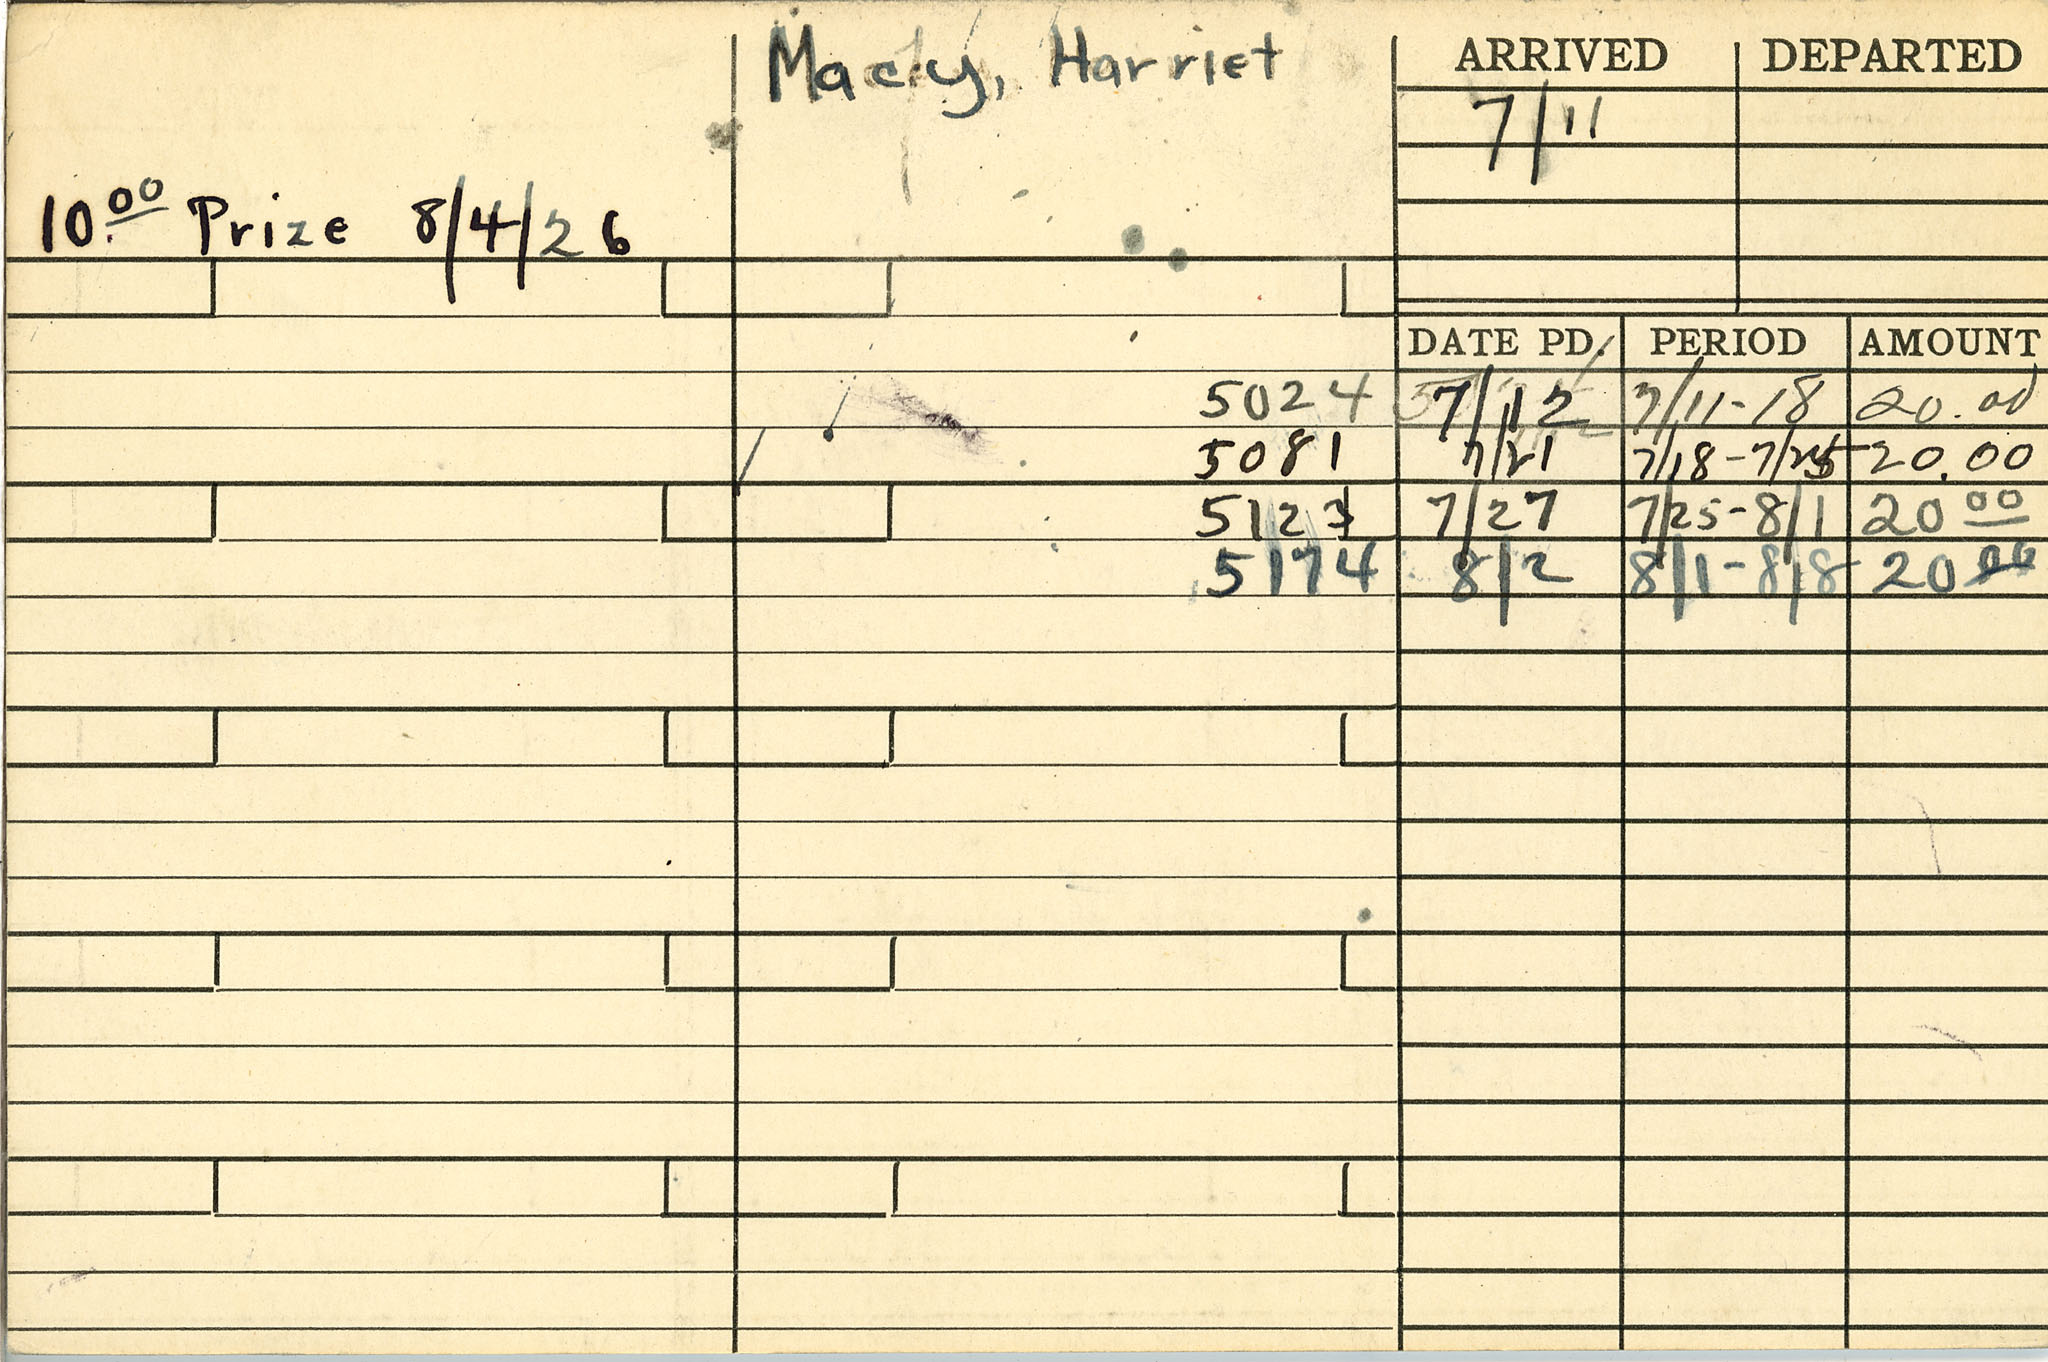 Macy, Harriet
ARRIVED DEPARTED
7/11
10.00 Prize 8/4/26
DATE PD. PERIOD AMOUNT
5024 7/12 7/11-18 20.00
5081 7/21 7/18-7/25 20.00
5123 7/27 7/25-8/1 20 00
5174 8/2 8/1-8/8 20 00